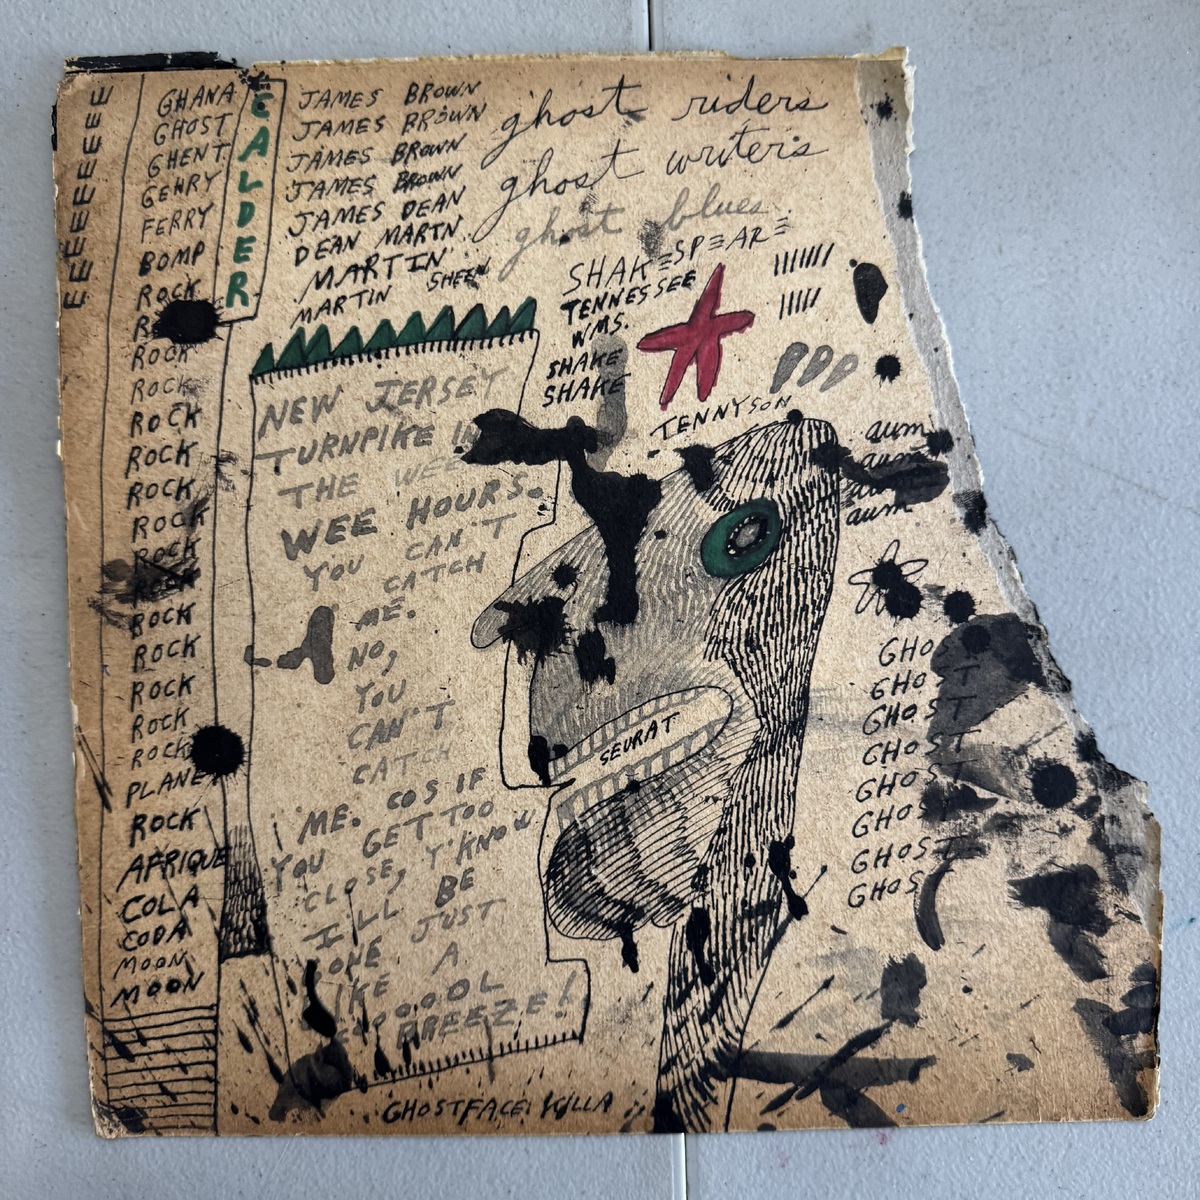 EEEEEEEE
GHANA
GHOST
GHENT
GEHRY
FERRY
BOMP
ROCK
ROCK
ROCK
ROCK
ROCK
ROCK
ROCK
ROCK
ROCK
ROCK
ROCK
ROCK
ROCK
ROCK
PLANET
ROCK
AFRIQUE
COLA
CODA
MOON
MOON
CALDER
JAMES BROWN
JAMES BROWN
JAMES BROWN
JAMES BROWN
JAMES DEAN
DEAN MARTN
MARTIN
MARTIN SHEEN
ghost riders
ghost writers
ghost blues
SHAKESPEARE
TENNESSEE
WMS.
SHAKE
SHAKE
TENNYSON
NEW JERSEY
TURNPIKE IN
THE WEE
WEE HOURS.
YOU CAN'T
CATCH
ME.
NO,
YOU
CAN'T
CATCH
ME. COS IF
YOU GET TOO
CLOSE, Y'KNOW
I'LL BE
GONE JUST
LIKE A
COOOOL
BREEZE!
SEURAT
aum
aum
aum
aum
GHOST
GHOST
GHOST
GHOST
GHOST
GHOST
GHOST
GHOST
GHOSTFACE KILLA